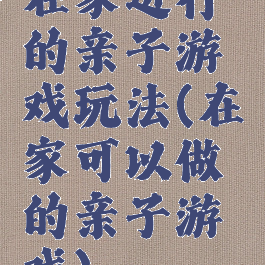 在家进行
的亲子游
戏玩法(在
家可以做
的亲子游
戏)